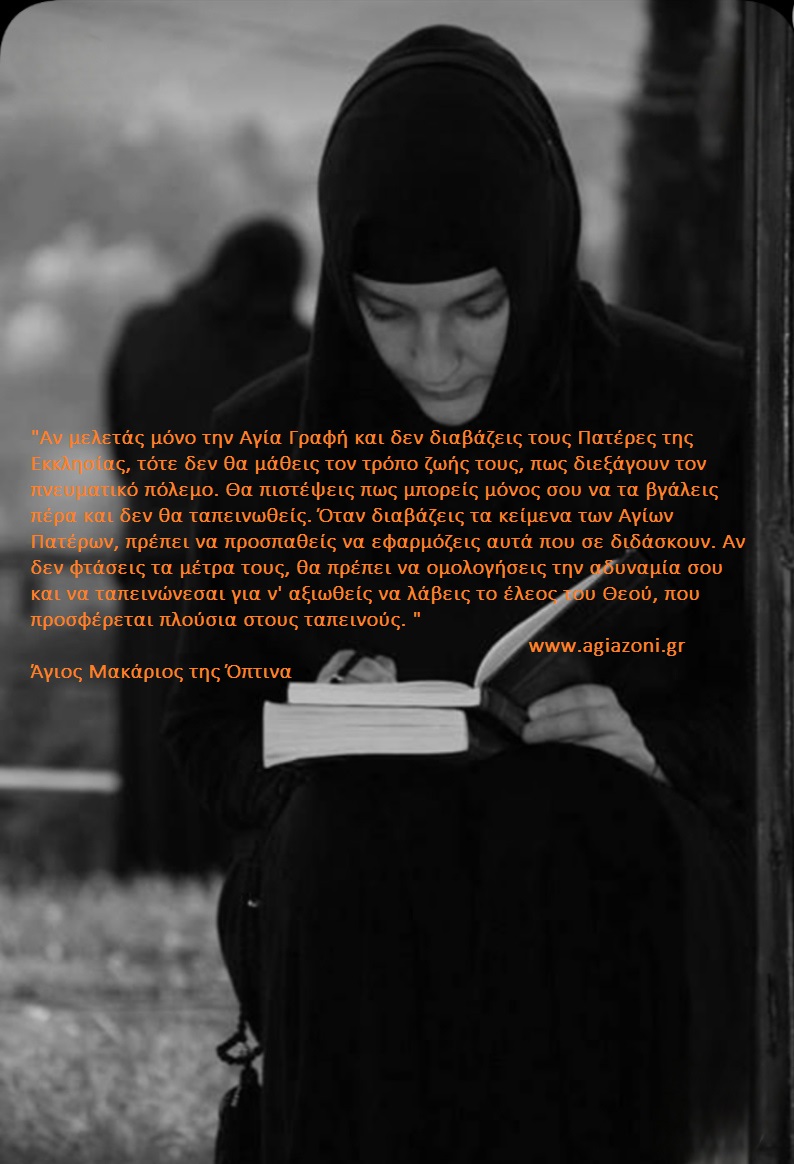 "Αν μελετάς μόνο την Αγία Γραφή και δεν διαβάζεις τους Πατέρες της
Εκκλησίας, τότε δεν θα μάθεις τον τρόπο ζωής τους, πως διεξάγουν τον
πνευματικό πόλεμο. Θα πιστέψεις πως μπορείς μόνος σου να τα βγάλεις
πέρα και δεν θα ταπεινωθείς. Όταν διαβάζεις τα κείμενα των Αγίων
Πατέρων, πρέπει να προσπαθείς να εφαρμόζεις αυτά που σε διδάσκουν. Αν
δεν φτάσεις τα μέτρα τους, θα πρέπει να ομολογήσεις την αδυναμία σου
και να ταπεινώνεσαι για ν' αξιωθείς να λάβεις το έλεος του Θεού, που
προσφέρεται πλούσια στους ταπεινούς. "
www.agiazoni.gr
Άγιος Μακάριος της Όπτινα